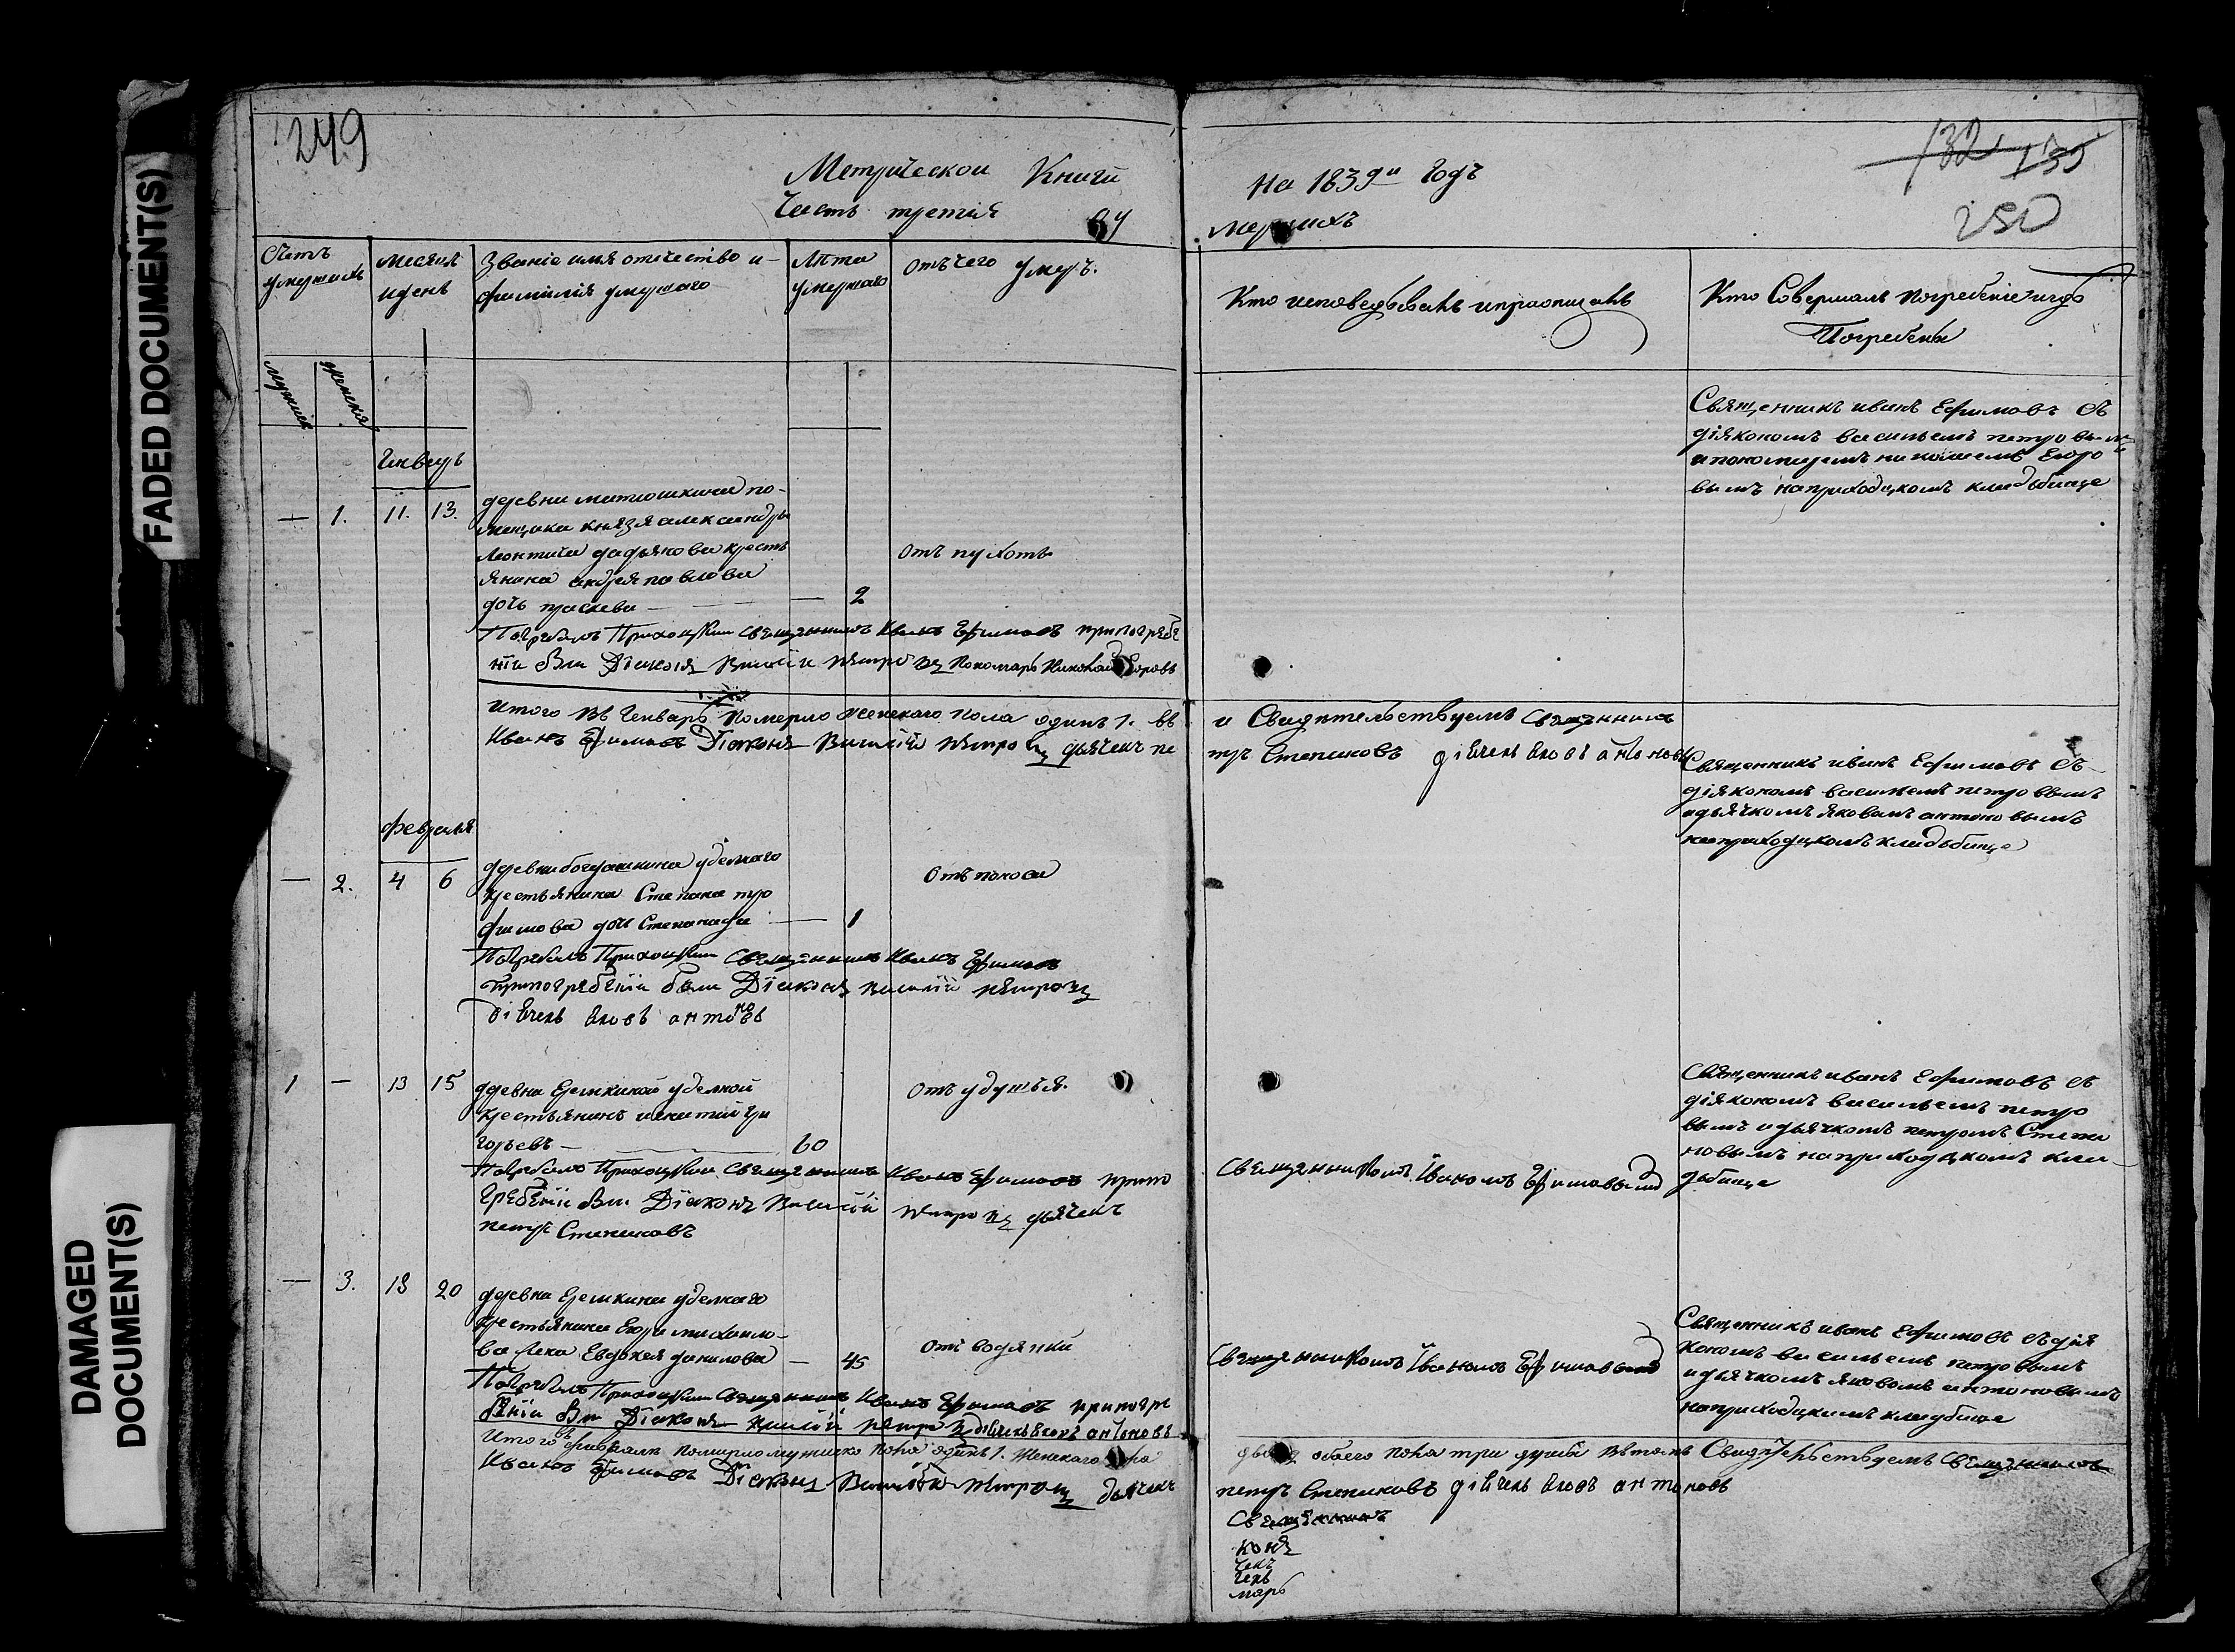 FADED DOCUMENT(S)
DAMAGED
DOCUMENT(S)
249
Метрической Книги
Часть третiя
На 1839й Годъ
132
135
250
Счетъ умершихъ
мужеска
женска
Месяцъ и день
Званiе имя отечество и
фамилiя умершаго
Лѣта умершаго
Отъ чего умеръ.
Кто исповедывалъ и прiопщалъ
Кто Совершалъ погребенiе и гдѣ
Погребены
Генварь
— 1. 11. 13.
деревни матюшкина по-
мещика князя александры
Леонтича дадьянова кресть
янина андрея павлова
дочь праскева — 2
Отъ пухоты
Священникъ иванъ Ефимовъ съ
дiякономъ васильемъ петровымъ
и пономаремъ николаемъ Егоро
вымъ на приходцкомъ кладбище
Погребалъ Приходцкiи священникъ Иванъ Ефимовъ при погребе
нiи были Дiаконъ Василiй Петровъ Пономарь Николай Егоровъ
Итого въ Генварѣ Померло женскаго пола одинъ 1. въ
и Свидѣтельствуемъ священникъ
Иванъ Ефимовъ Дiаконъ Василiй Петровъ дьячекъ пе
тръ Степановъ дiячекъ яковъ антоновъ
февраля
— 2. 4 6
деревни богдашкина уделнаго
крестьянина Степана тро
фимова дочь Степанида — 1
Отъ поноса
Священникъ иванъ Ефимовъ съ
дiякономъ васильемъ петровымъ
и дьячкомъ яковомъ антоновымъ
на приходцкомъ кладбище
Погребалъ Приходцкiи священникъ Иванъ Ефимовъ
при погребенiи были Дiаконъ Василiй Петровъ
дiячекъ яковъ антоновъ
1 — 13 15
деревни Ерешкиной уделной
крестьянинъ игнатiй гри
горьевъ — 60
Отъ удушья.
Священникомъ Iваномъ Ефимовымъ
Священникъ иванъ Ефимовъ съ
дiякономъ васильемъ петро
вымъ и дьячкомъ петромъ Степа
новымъ на приходцкомъ кла
дбище
Погребалъ Приходцкiи священникъ Иванъ Ефимовъ при по
гребенiи были Дiаконъ Василiй Петровъ дьячекъ
петръ Степановъ
— 3. 18 20
деревни Ерешкина уделнаго
крестьянина Егора михаило-
ва жена Евдокея данилова — 45
Отъ водянки
Священникомъ Iваномъ Ефимовымъ
Священникъ иванъ Ефимовъ съ дiя
кономъ васильемъ петровымъ
и дьячкомъ яковомъ антоновымъ
на приходцкомъ кладбище
Погребалъ Приходцкiи священникъ Иванъ Ефимовъ при погре
бенiи были Дiаконъ Василiй Петровъ дiячекъ яковъ антоновъ
Итого въ феврале померло мужеско пола одинъ 1. женскаго пола
обоего пола три души в томъ Свидѣтельствуемъ священникъ
Иванъ Ефимовъ Дiаконъ Василiй Петровъ дьячекъ
петръ Степановъ дiячекъ яковъ антоновъ
Священникъ
конъ
чекъ
чекъ
марь